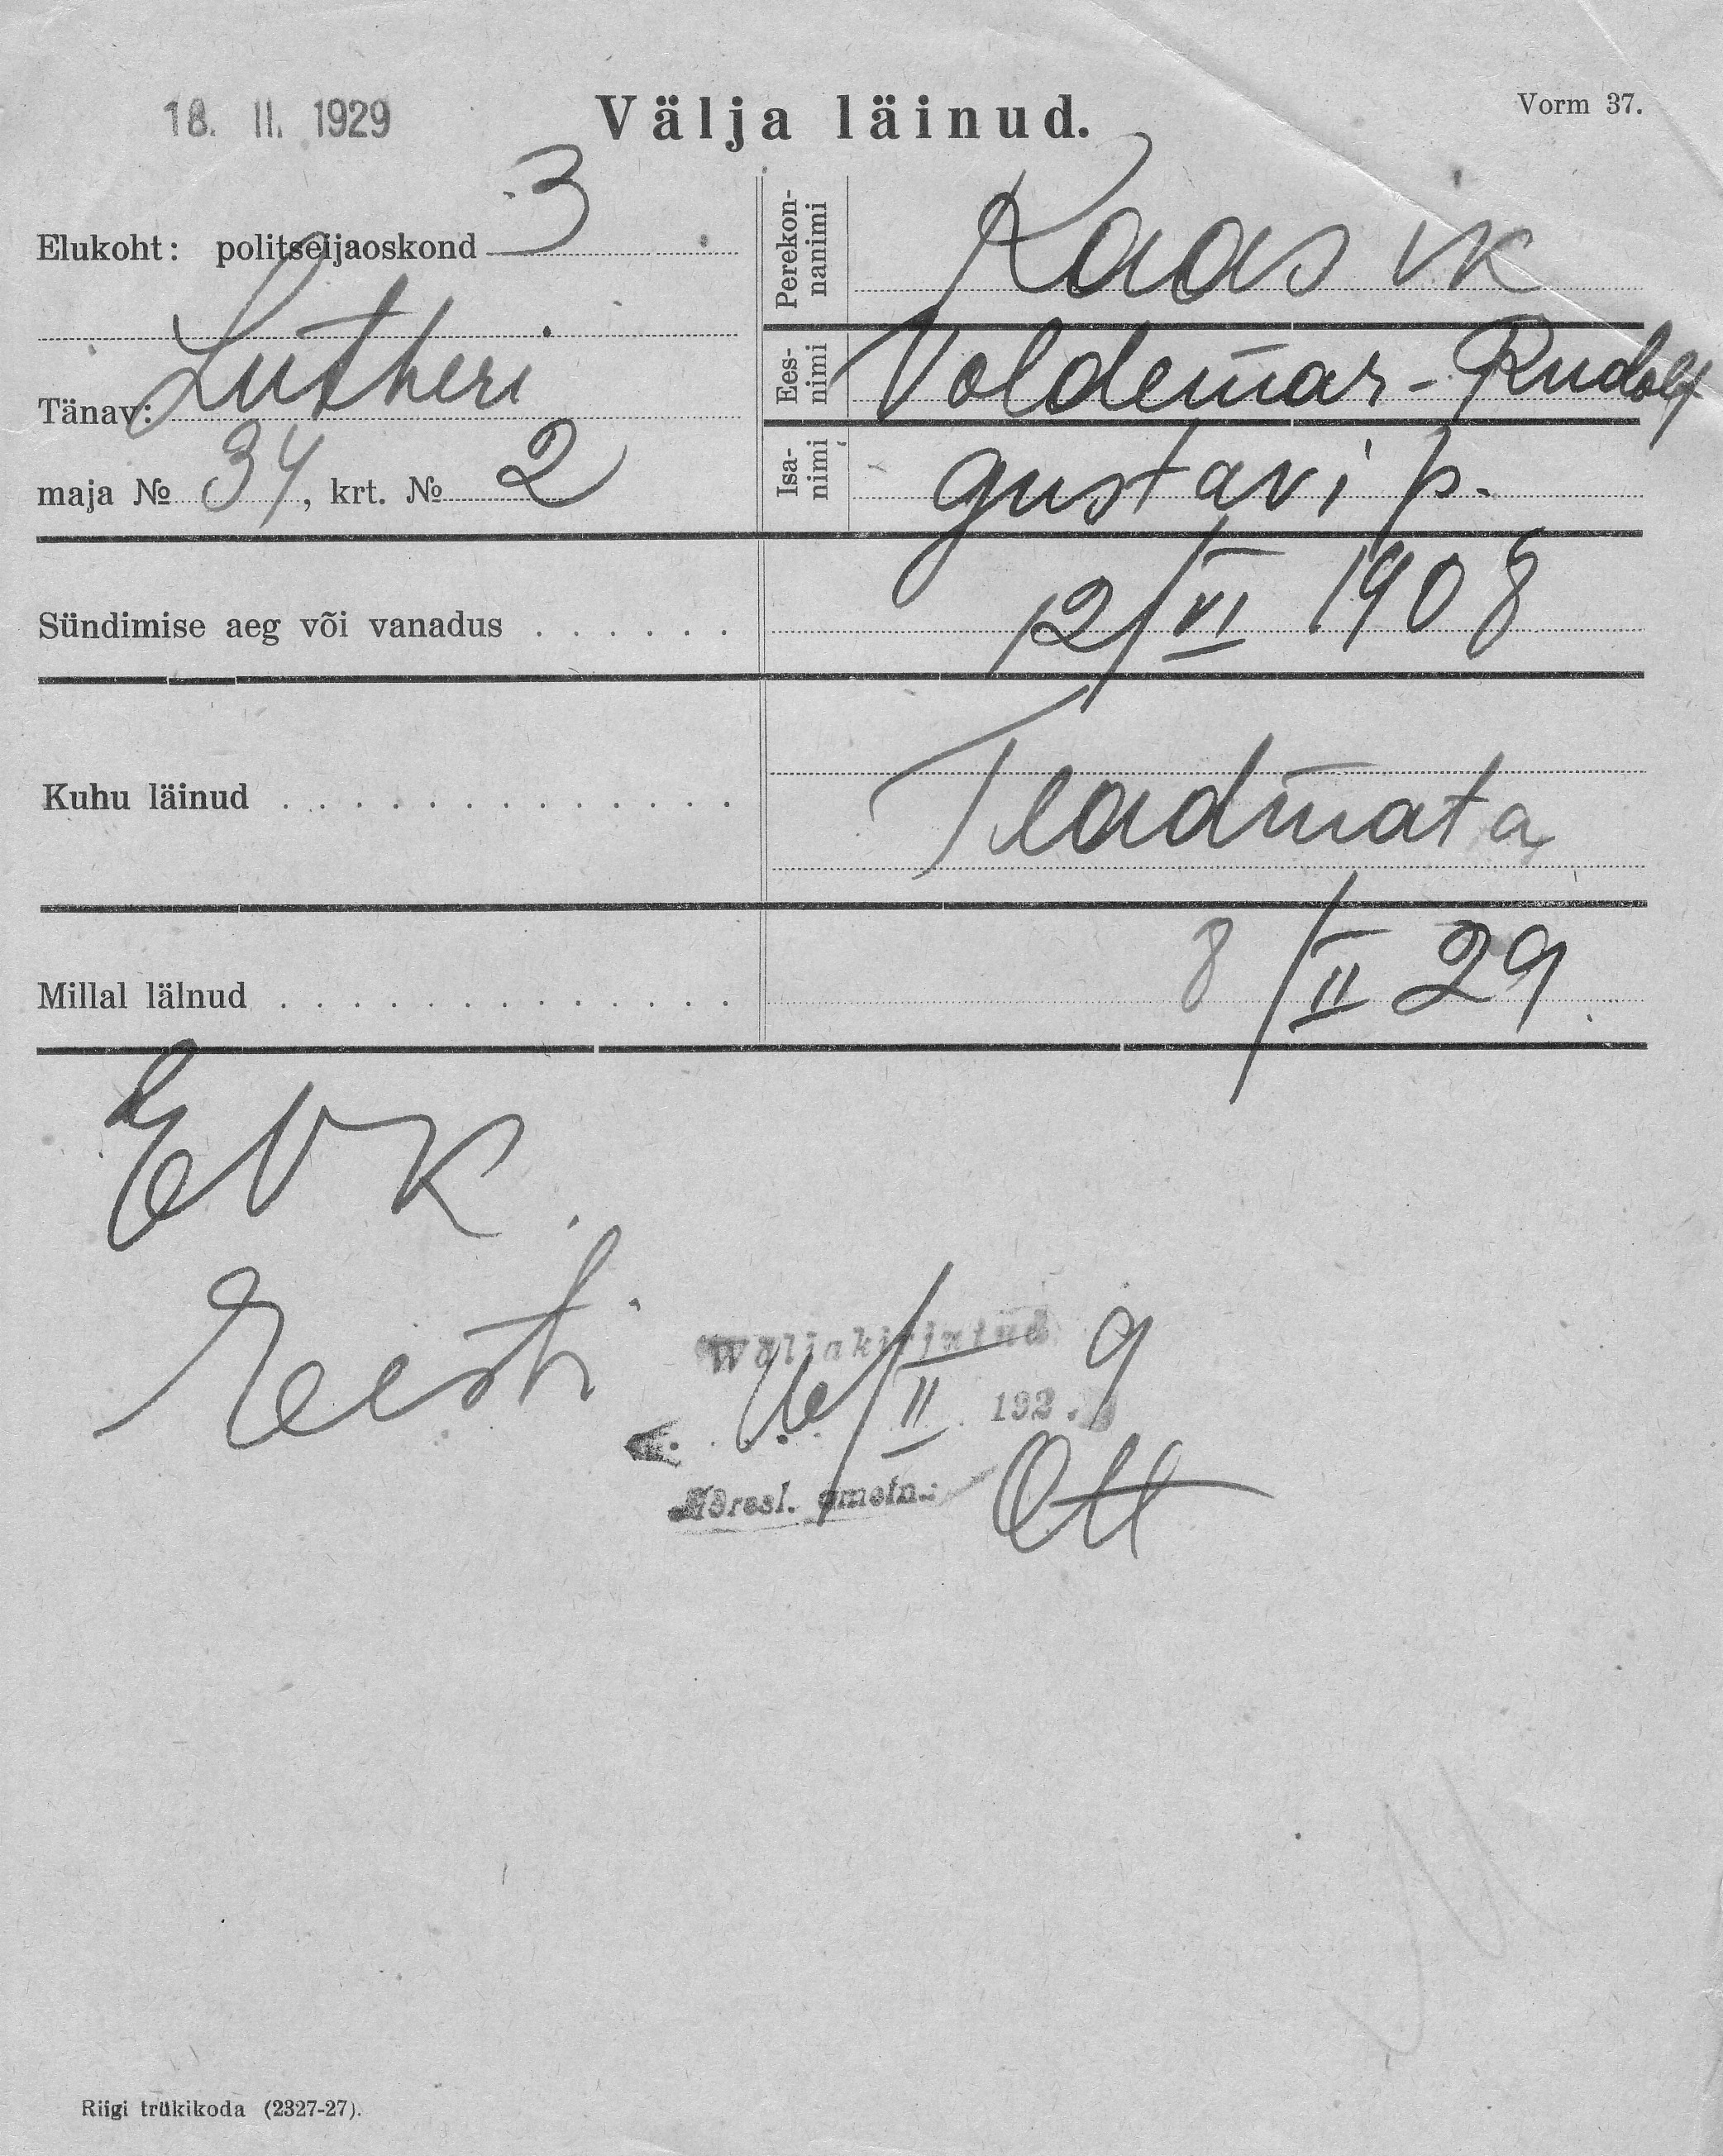 18. II. 1929
Välja läinud.
Vorm 37.
Elukoht: politseijaoskond 3
Tänav: Lutheri
maja № 34, krt. № 2
Perekon-
nanimi
Kaasik
Ees-
nimi
Voldemar-Rudolf
Isa-
nimi
Gustavi p.
Sündimise aeg või vanadus . . . . . .
12/VI 1908
Kuhu läinud . . . . . . . . . . . . .
Teadmata
Millal läinud . . . . . . . . . . . . .
8/II 29.
EVK.
Eesti
Wäljakirjutud
/II 192.9
Adresl. ametn.: Ott
Riigi trükikoda (2327-27).